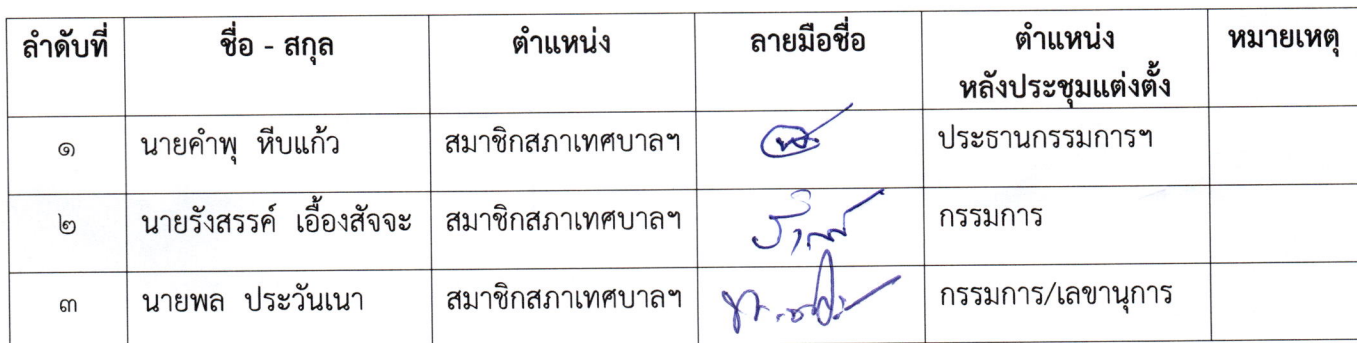 ลำดับที่ ชื่อ - สกุล ตำแหน่ง ลายมือชื่อ ตำแหน่ง หมายเหตุ
หลังประชุมแต่งตั้ง
๑ นายคำพุ หีบแก้ว สมาชิกสภาเทศบาลฯ ประธานกรรมการฯ
๒ นายรังสรรค์ เอื้องสัจจะ สมาชิกสภาเทศบาลฯ กรรมการ
๓ นายพล ประวันเนา สมาชิกสภาเทศบาลฯ กรรมการ/เลขานุการ